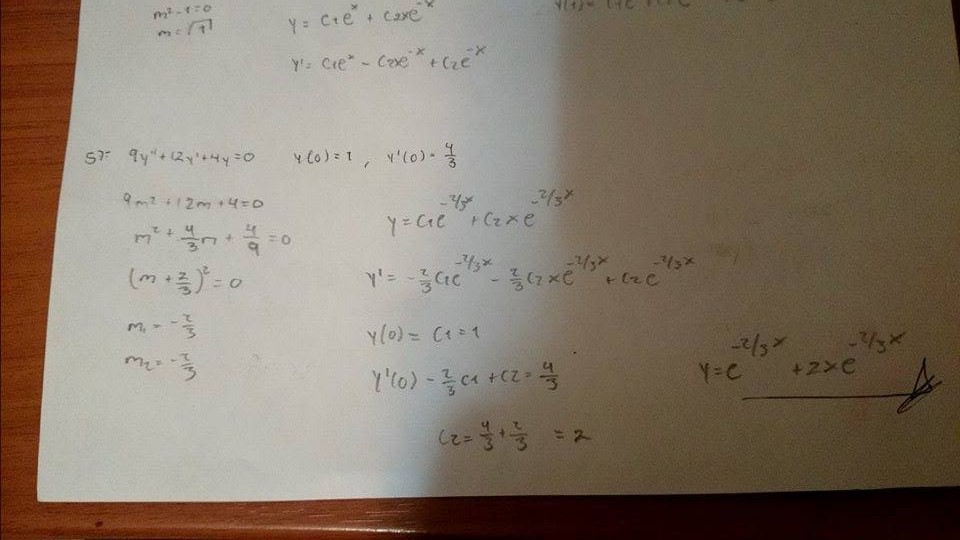 m² - 1 = 0
m = √1
y = c1e^x + c2xe^-x
y' = c1e^x - c2xe^-x + c2e^-x
57- 9y'' + 12y' + 4y = 0 y(0) = 1 , y'(0) = 4/3
9m² + 12m + 4 = 0
m² + 4/3 m + 4/9 = 0
(m + 2/3)² = 0
m1 = -2/3
m2 = -2/3
y = c1e^-2/3x + c2xe^-2/3x
y' = -2/3 c1e^-2/3x - 2/3 c2xe^-2/3x + c2e^-2/3x
y(0) = c1 = 1
y'(0) - 2/3 c1 + c2 = 4/3
c2 = 4/3 + 2/3 = 2
y = e^-2/3x + 2xe^-2/3x